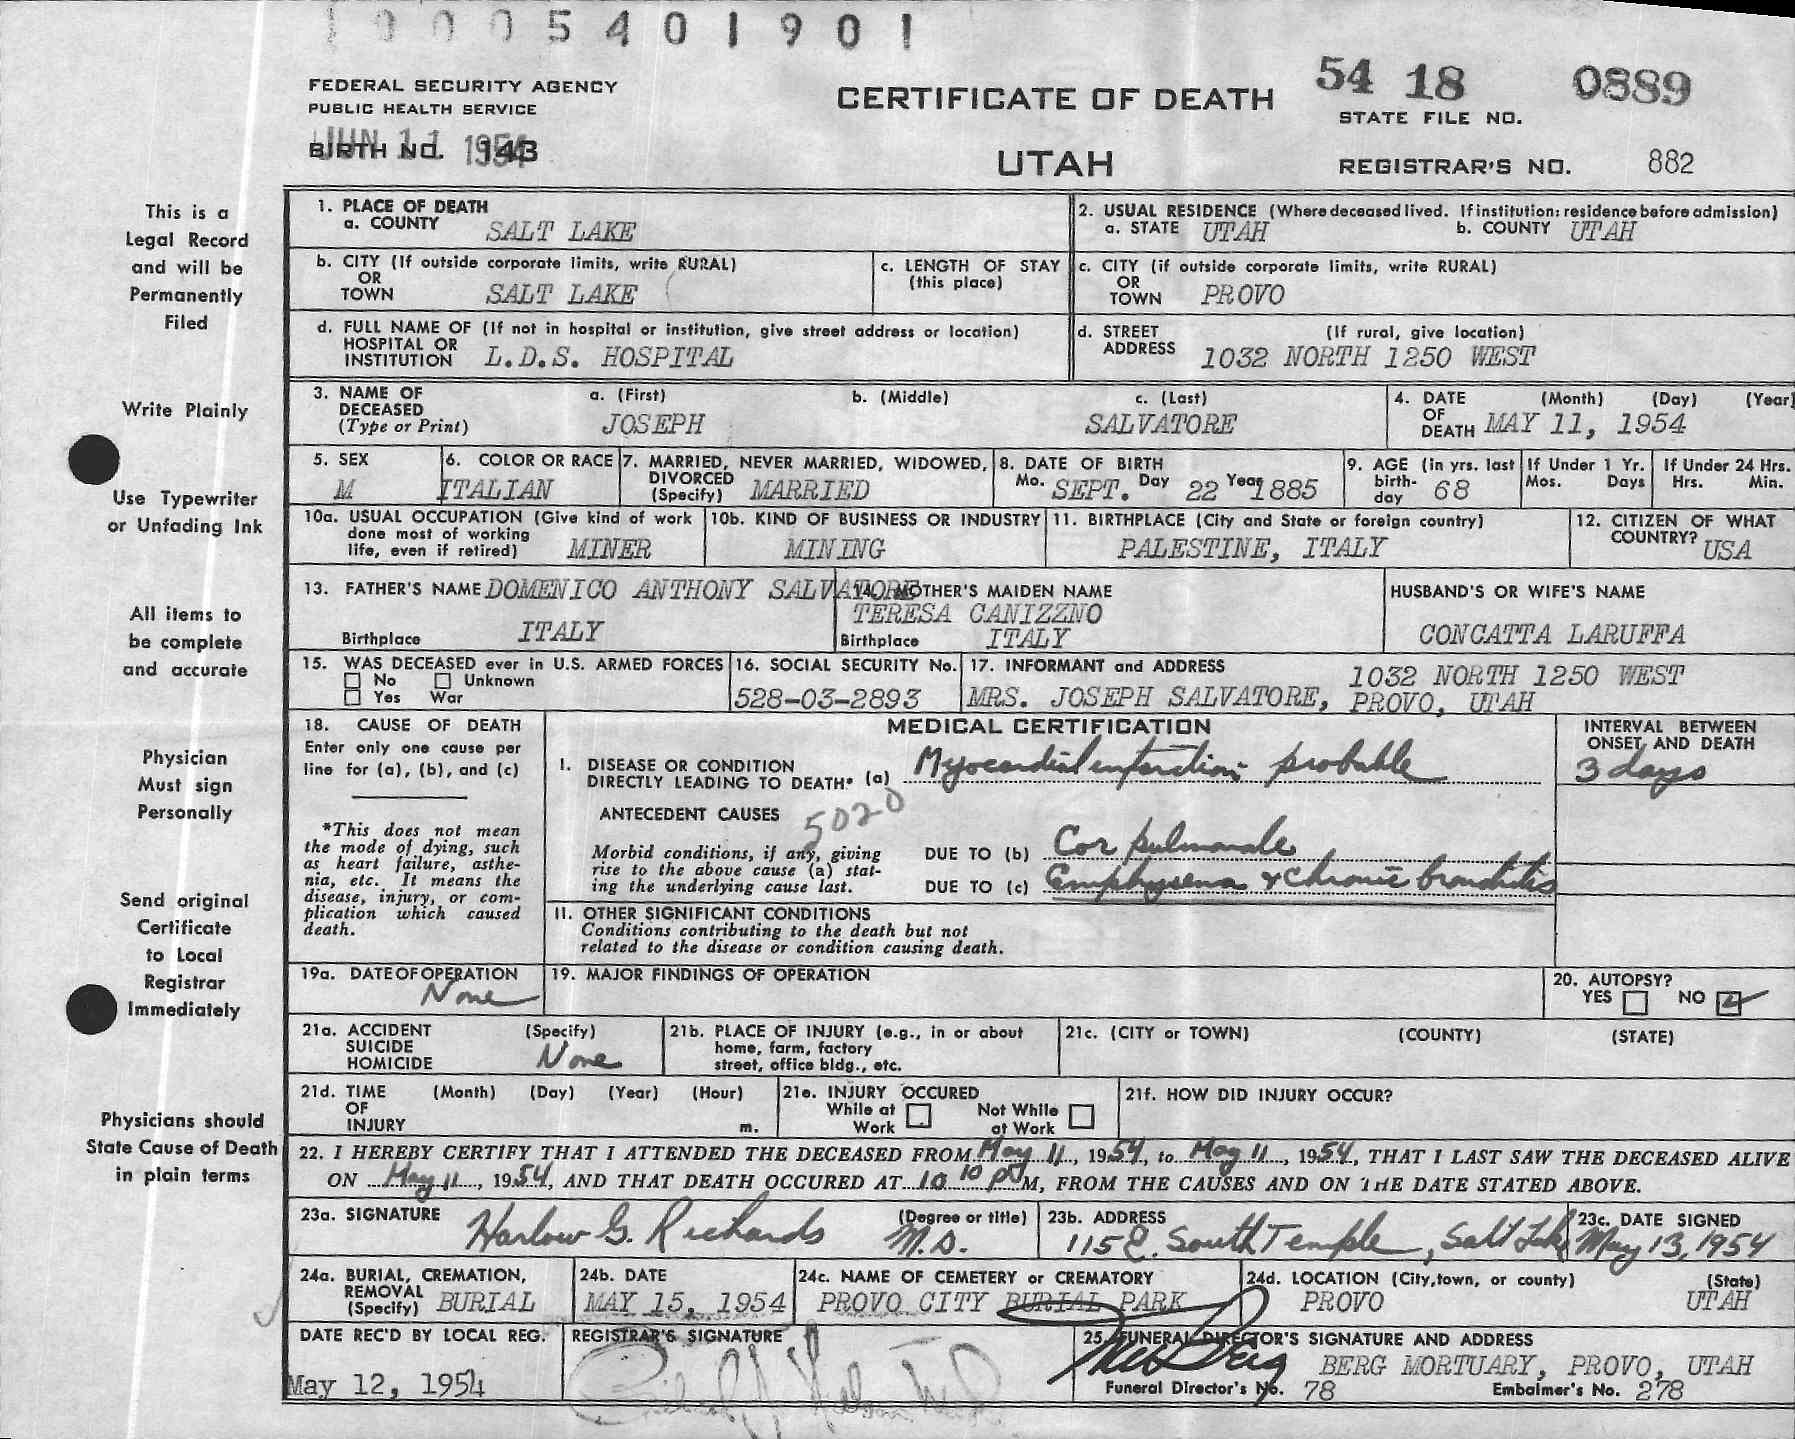 10005401901
FEDERAL SECURITY AGENCY
PUBLIC HEALTH SERVICE
JUN 11 1954
BIRTH NO. 143
CERTIFICATE OF DEATH
UTAH
54 18 0889
STATE FILE NO.
REGISTRAR'S NO. 882
This is a
Legal Record
and will be
Permanently
Filed
Write Plainly
Use Typewriter
or Unfading Ink
All items to
be complete
and accurate
Physician
Must sign
Personally
Send original
Certificate
to Local
Registrar
Immediately
Physicians should
State Cause of Death
in plain terms
1. PLACE OF DEATH
a. COUNTY SALT LAKE
2. USUAL RESIDENCE (Where deceased lived. If institution: residence before admission)
a. STATE UTAH b. COUNTY UTAH
b. CITY (If outside corporate limits, write RURAL)
OR
TOWN SALT LAKE
c. LENGTH OF STAY
(this place)
c. CITY (if outside corporate limits, write RURAL)
OR
TOWN PROVO
d. FULL NAME OF (If not in hospital or institution, give street address or location)
HOSPITAL OR
INSTITUTION L.D.S. HOSPITAL
d. STREET (If rural, give location)
ADDRESS 1032 NORTH 1250 WEST
3. NAME OF a. (First) b. (Middle) c. (Last)
DECEASED
(Type or Print) JOSEPH SALVATORE
4. DATE (Month) (Day) (Year)
OF
DEATH MAY 11, 1954
5. SEX
M
6. COLOR OR RACE
ITALIAN
7. MARRIED, NEVER MARRIED, WIDOWED,
DIVORCED
(Specify) MARRIED
8. DATE OF BIRTH
Mo. SEPT. Day 22 Year 1885
9. AGE (in yrs. last
birth-
day 68
If Under 1 Yr.
Mos. Days
If Under 24 Hrs.
Hrs. Min.
10a. USUAL OCCUPATION (Give kind of work
done most of working
life, even if retired) MINER
10b. KIND OF BUSINESS OR INDUSTRY
MINING
11. BIRTHPLACE (City and State or foreign country)
PALESTINE, ITALY
12. CITIZEN OF WHAT
COUNTRY? USA
13. FATHER'S NAME DOMENICO ANTHONY SALVATORE
Birthplace ITALY
14. MOTHER'S MAIDEN NAME
TERESA CANIZZNO
Birthplace ITALY
HUSBAND'S OR WIFE'S NAME
CONCATTA LARUFFA
15. WAS DECEASED ever in U.S. ARMED FORCES
No Unknown
Yes War
16. SOCIAL SECURITY No.
528-03-2893
17. INFORMANT and ADDRESS 1032 NORTH 1250 WEST
MRS. JOSEPH SALVATORE, PROVO, UTAH
18. CAUSE OF DEATH
Enter only one cause per
line for (a), (b), and (c)
*This does not mean
the mode of dying, such
as heart failure, asthe-
nia, etc. It means the
disease, injury, or com-
plication which caused
death.
MEDICAL CERTIFICATION
INTERVAL BETWEEN
ONSET AND DEATH
I. DISEASE OR CONDITION
DIRECTLY LEADING TO DEATH* (a) Myocardial infarction probable 3 days
ANTECEDENT CAUSES 5020
Morbid conditions, if any, giving
rise to the above cause (a) stat-
ing the underlying cause last.
DUE TO (b) Cor pulmonale
DUE TO (c) Emphysema & chronic bronchitis
II. OTHER SIGNIFICANT CONDITIONS
Conditions contributing to the death but not
related to the disease or condition causing death.
19a. DATE OF OPERATION
None
19. MAJOR FINDINGS OF OPERATION
20. AUTOPSY?
YES NO
21a. ACCIDENT (Specify)
SUICIDE
HOMICIDE None
21b. PLACE OF INJURY (e.g., in or about
home, farm, factory
street, office bldg., etc.
21c. (CITY or TOWN) (COUNTY) (STATE)
21d. TIME (Month) (Day) (Year) (Hour)
OF
INJURY m.
21e. INJURY OCCURED
While at Not While
Work at Work
21f. HOW DID INJURY OCCUR?
22. I HEREBY CERTIFY THAT I ATTENDED THE DECEASED FROM May 11, 1954, to May 11, 1954, THAT I LAST SAW THE DECEASED ALIVE
ON May 11, 1954, AND THAT DEATH OCCURED AT 10 10 P M, FROM THE CAUSES AND ON THE DATE STATED ABOVE.
23a. SIGNATURE (Degree or title)
Harlow G. Richards M.D.
23b. ADDRESS
115 E. South Temple, Salt Lake
23c. DATE SIGNED
May 13, 1954
24a. BURIAL, CREMATION,
REMOVAL
(Specify) BURIAL
24b. DATE
MAY 15, 1954
24c. NAME OF CEMETERY or CREMATORY
PROVO CITY BURIAL PARK
24d. LOCATION (City, town, or county) (State)
PROVO UTAH
DATE REC'D BY LOCAL REG.
May 12, 1954
REGISTRAR'S SIGNATURE
25. FUNERAL DIRECTOR'S SIGNATURE AND ADDRESS
BERG MORTUARY, PROVO, UTAH
Funeral Director's No. 78 Embalmer's No. 278